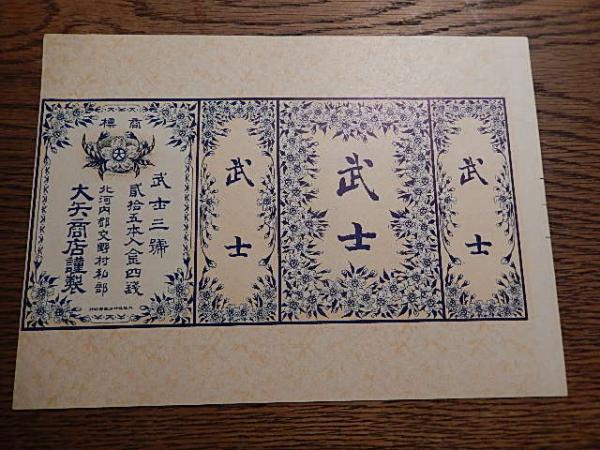 商標
大
武士三號
貳拾五本入金四錢
北河内郡交野村私部
大矢商店謹製
武士
武士
武士